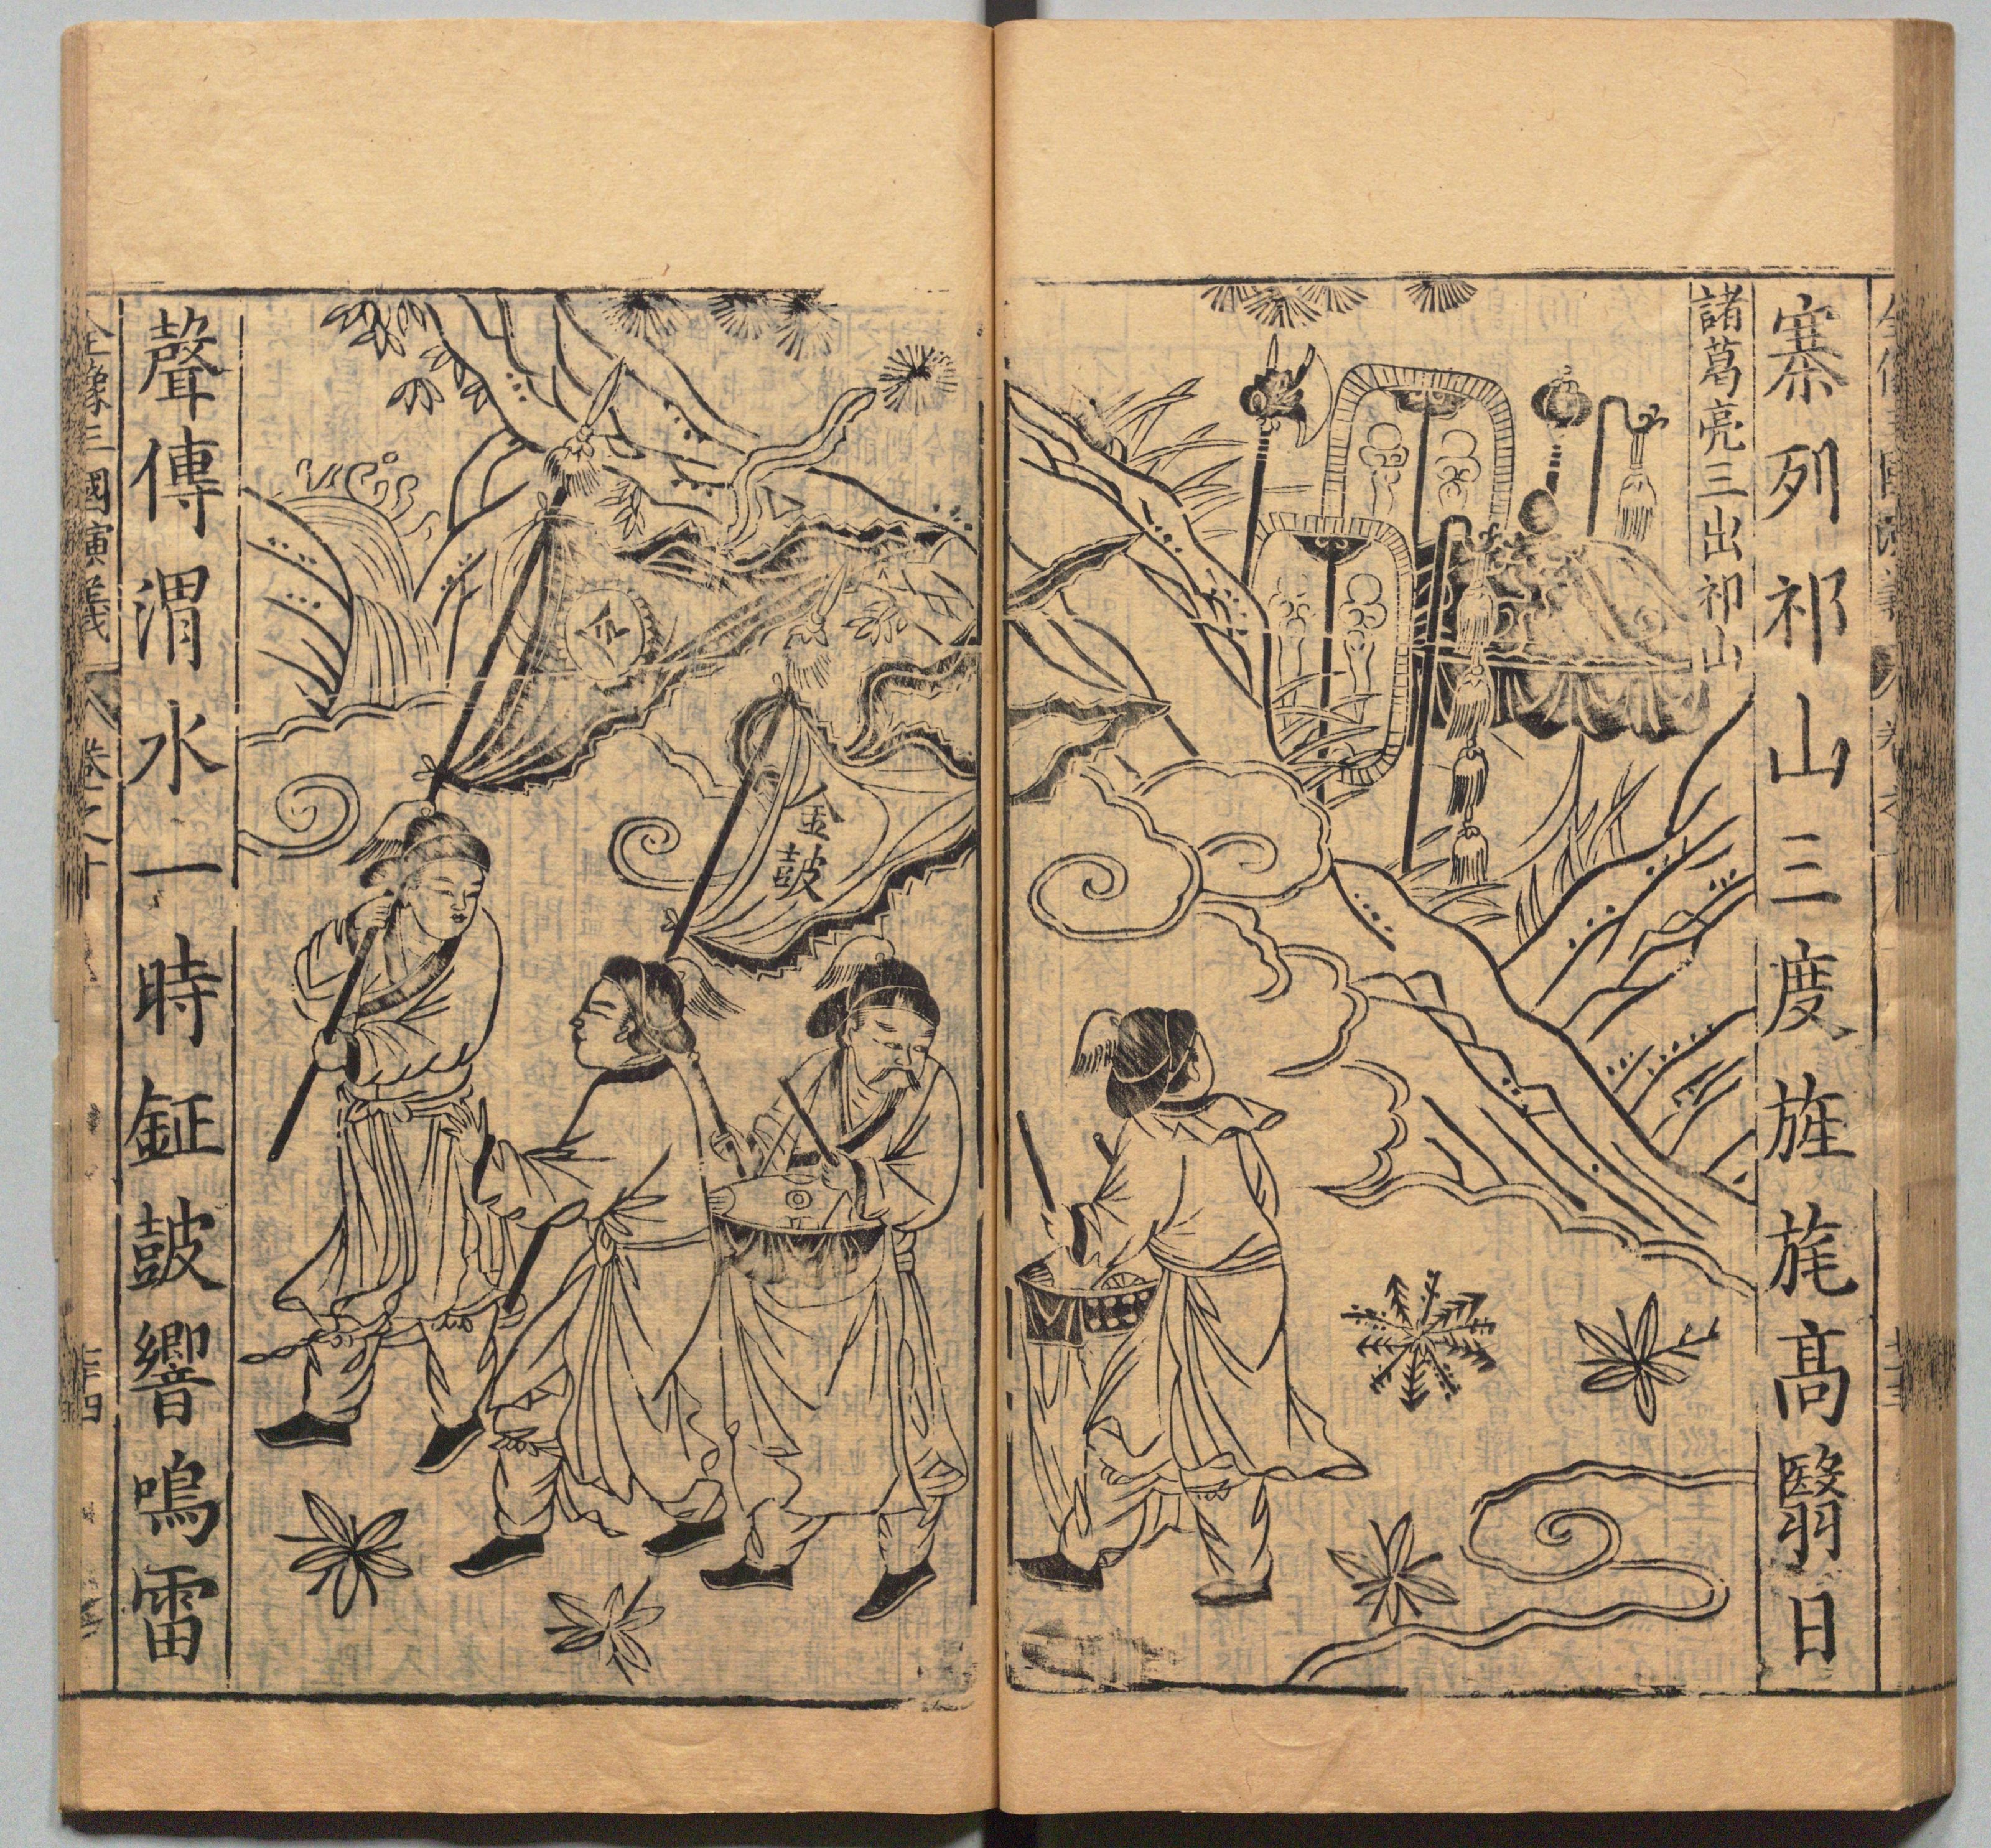 寨列祁山三度旌旄高翳日
諸葛亮三出祁山
令
金鼓
聲傳渭水一時鉦鼓響鳴雷
全像三國演義
卷之十